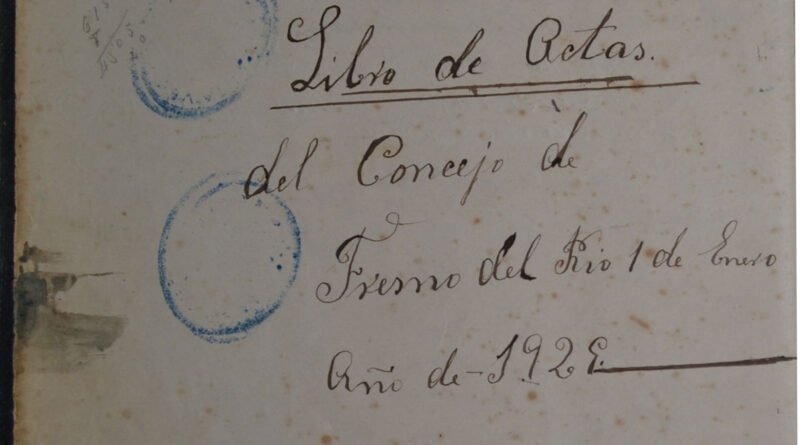 Libro de Actas.
del Concejo de
Fresno del Rio 1 de Enero
Año de - 192